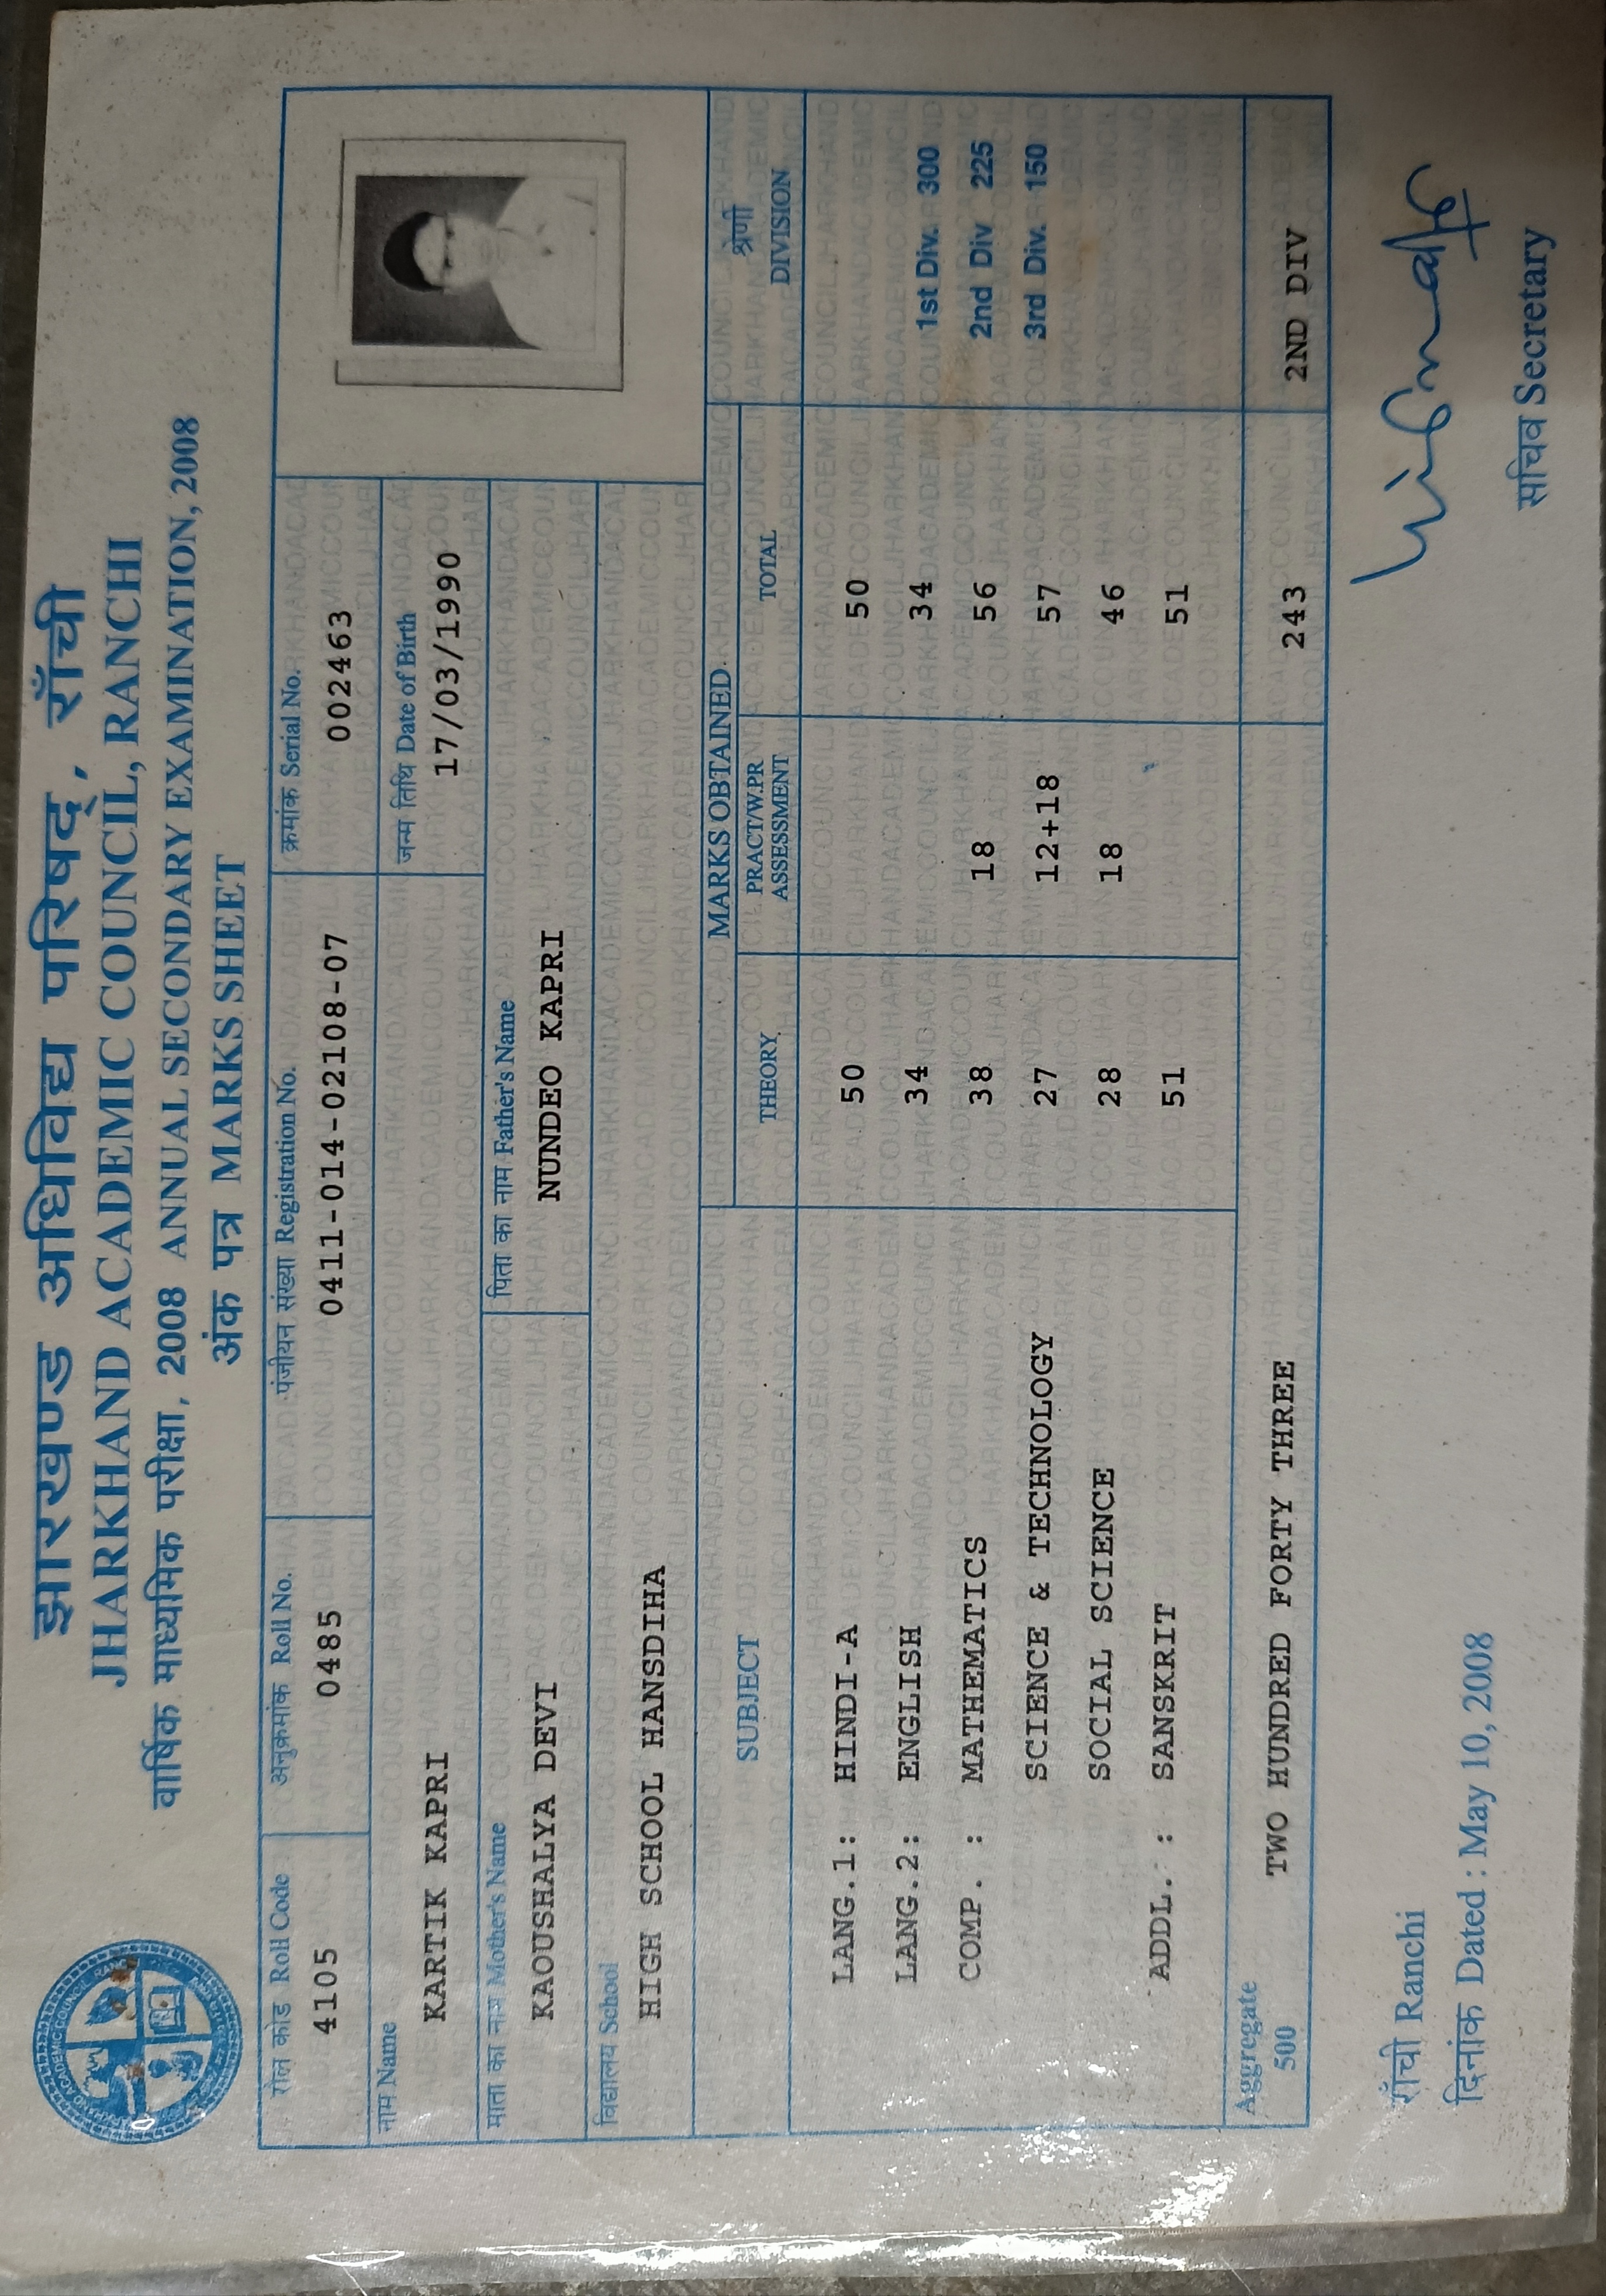 झारखण्ड अधिविद्य परिषद्, राँची
JHARKHAND ACADEMIC COUNCIL, RANCHI
वार्षिक माध्यमिक परीक्षा, 2008 ANNUAL SECONDARY EXAMINATION, 2008
अंक पत्र MARKS SHEET
रोल कोड Roll Code अनुक्रमांक Roll No. पंजीयन संख्या Registration No. क्रमांक Serial No.
4105 0485 0411-014-02108-07 002463
नाम Name जन्म तिथि Date of Birth
KARTIK KAPRI 17/03/1990
माता का नाम Mother's Name पिता का नाम Father's Name
KAOUSHALYA DEVI NUNDEO KAPRI
विद्यालय School
HIGH SCHOOL HANSDIHA
SUBJECT MARKS OBTAINED श्रेणी DIVISION
THEORY PRACT/W.PR ASSESSMENT TOTAL
LANG.1: HINDI-A 50 50
LANG.2: ENGLISH 34 34 1st Div. 300
COMP. : MATHEMATICS 38 18 56 2nd Div 225
SCIENCE & TECHNOLOGY 27 12+18 57 3rd Div. 150
SOCIAL SCIENCE 28 18 46
ADDL. : SANSKRIT 51 51
Aggregate
500 TWO HUNDRED FORTY THREE 243 2ND DIV
राँची Ranchi
दिनांक Dated : May 10, 2008
सचिव Secretary